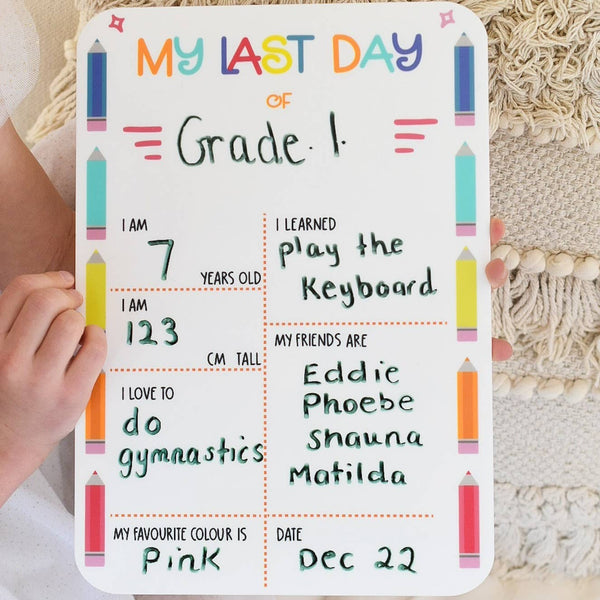 MY LAST DAY
OF
Grade 1.
I AM
7
YEARS OLD
I AM
123
CM TALL
I LOVE TO
do
gymnastics
MY FAVOURITE COLOUR IS
Pink
I LEARNED
play the
Keyboard
MY FRIENDS ARE
Eddie
Phoebe
Shauna
Matilda
DATE
Dec 22